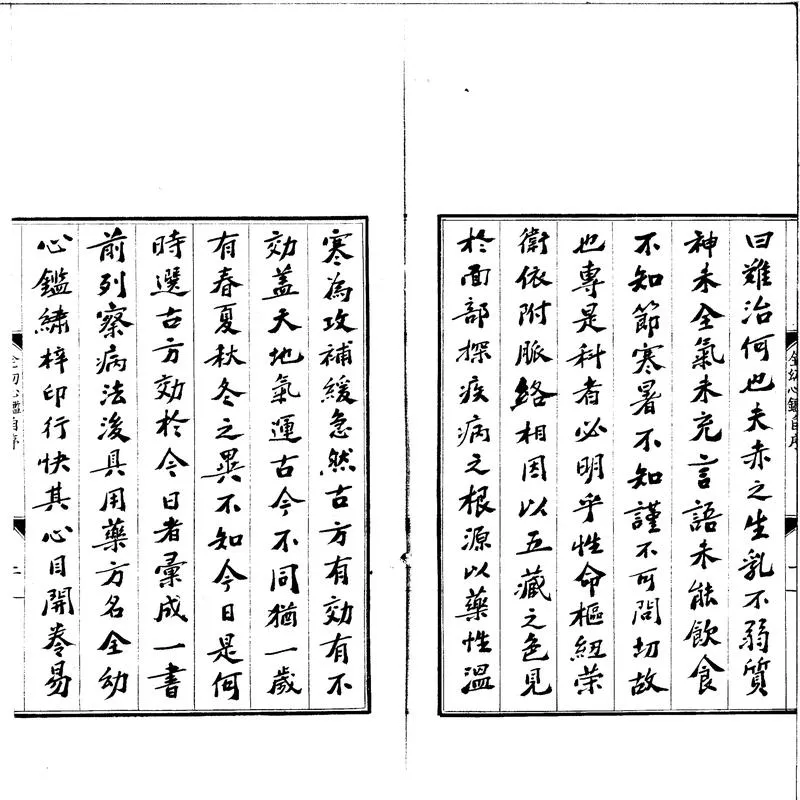 曰難治何也夫赤之生乳不弱質
神未全氣未充言語未能飲食
不知節寒暑不知謹不可問切故
也專是科者必明乎性命樞紐荣
衛依附脈絡相因以五藏之色見
於面部探疾病之根源以藥性溫
寒為攻補緩急然古方有効有不
効蓋天地氣運古今不同猶一歲
有春夏秋冬之異不知今日是何
時選古方効於今日者彙成一書
前列察病法後具用藥方名全幼
心鑑繡梓印行快其心目開卷易
全幼心鑑自序
一
全幼心鑑自序
二